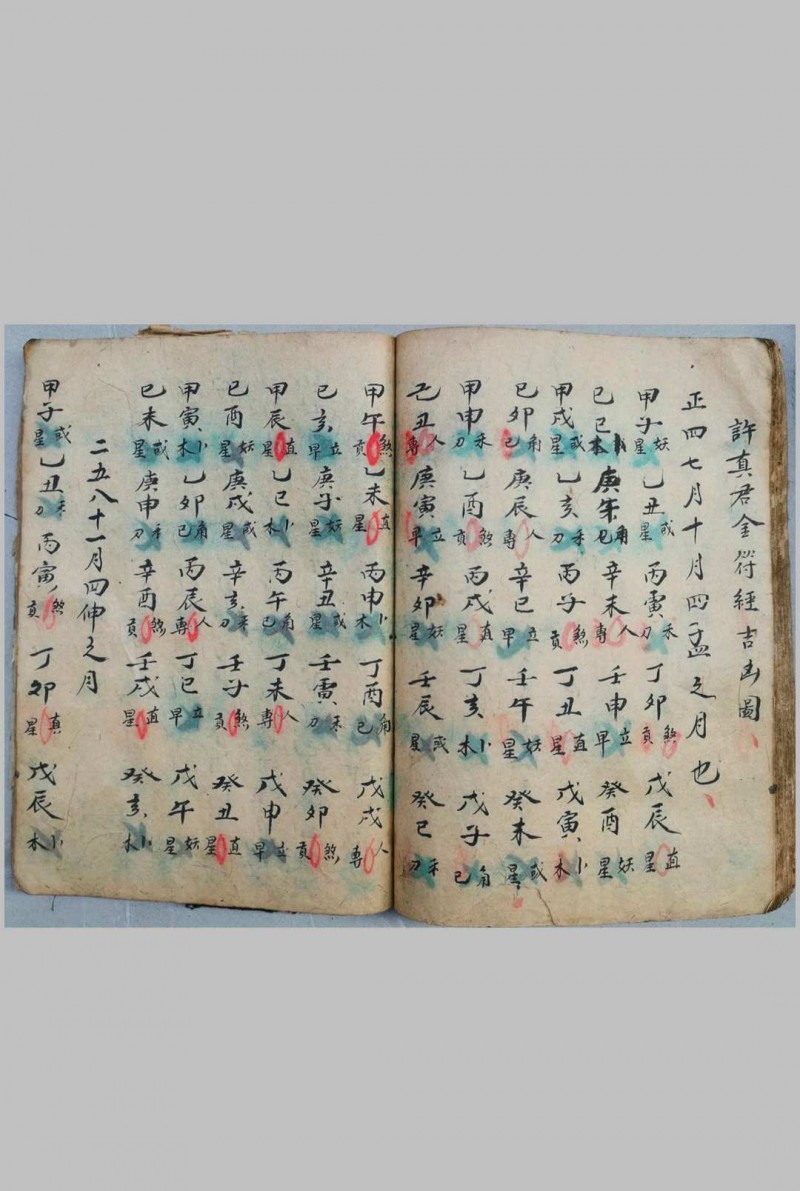 許真君金符經吉凶圖
正四七月十月四孟之月也
甲子妖星乙丑或星丙寅禾刀丁卯煞貢戊辰直星
己巳卜木庚午角己辛未人專壬申立早癸酉妖星
甲戌或星乙亥禾刀丙子煞貢丁丑直星戊寅卜木
己卯角己庚辰人專辛巳立早壬午妖星癸未或星
甲申禾刀乙酉煞貢丙戌直星丁亥卜木戊子角己
己丑人專庚寅立早辛卯妖星壬辰或星癸巳禾刀
甲午煞貢乙未直星丙申卜木丁酉角己戊戌人專
己亥立早庚子妖星辛丑或星壬寅禾刀癸卯煞貢
甲辰直星乙巳卜木丙午角己丁未人專戊申立早
己酉妖星庚戌或星辛亥禾刀壬子煞貢癸丑直星
甲寅卜木乙卯角己丙辰人專丁巳立早戊午妖星
己未或星庚申禾刀辛酉煞貢壬戌直星癸亥卜木
二五八十一月四伸之月
甲子或星乙丑禾刀丙寅煞貢丁卯真星戊辰卜木